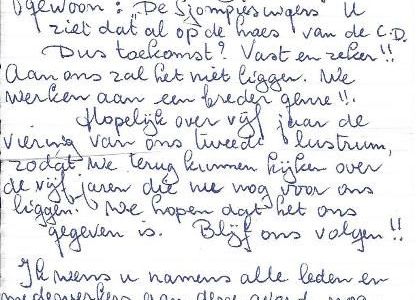 gewoon: "De Sjompieswgers" U
ziet dat al op de hoes van de C.D.
Dus toekomst? Vast en zeker!!
Aan ons zal het niet liggen. We
werken aan een breder genre!!.
Hopelijk over vijf jaar de
viering van ons tweede lustrum,
zodat we terug kunnen kijken over
de vijf jaren die nu nog voor ons
liggen. We hopen dat het ons
gegeven is. Blijf ons volgen!!
Ik wens u namens alle leden en
medewerkers aan deze avond nog